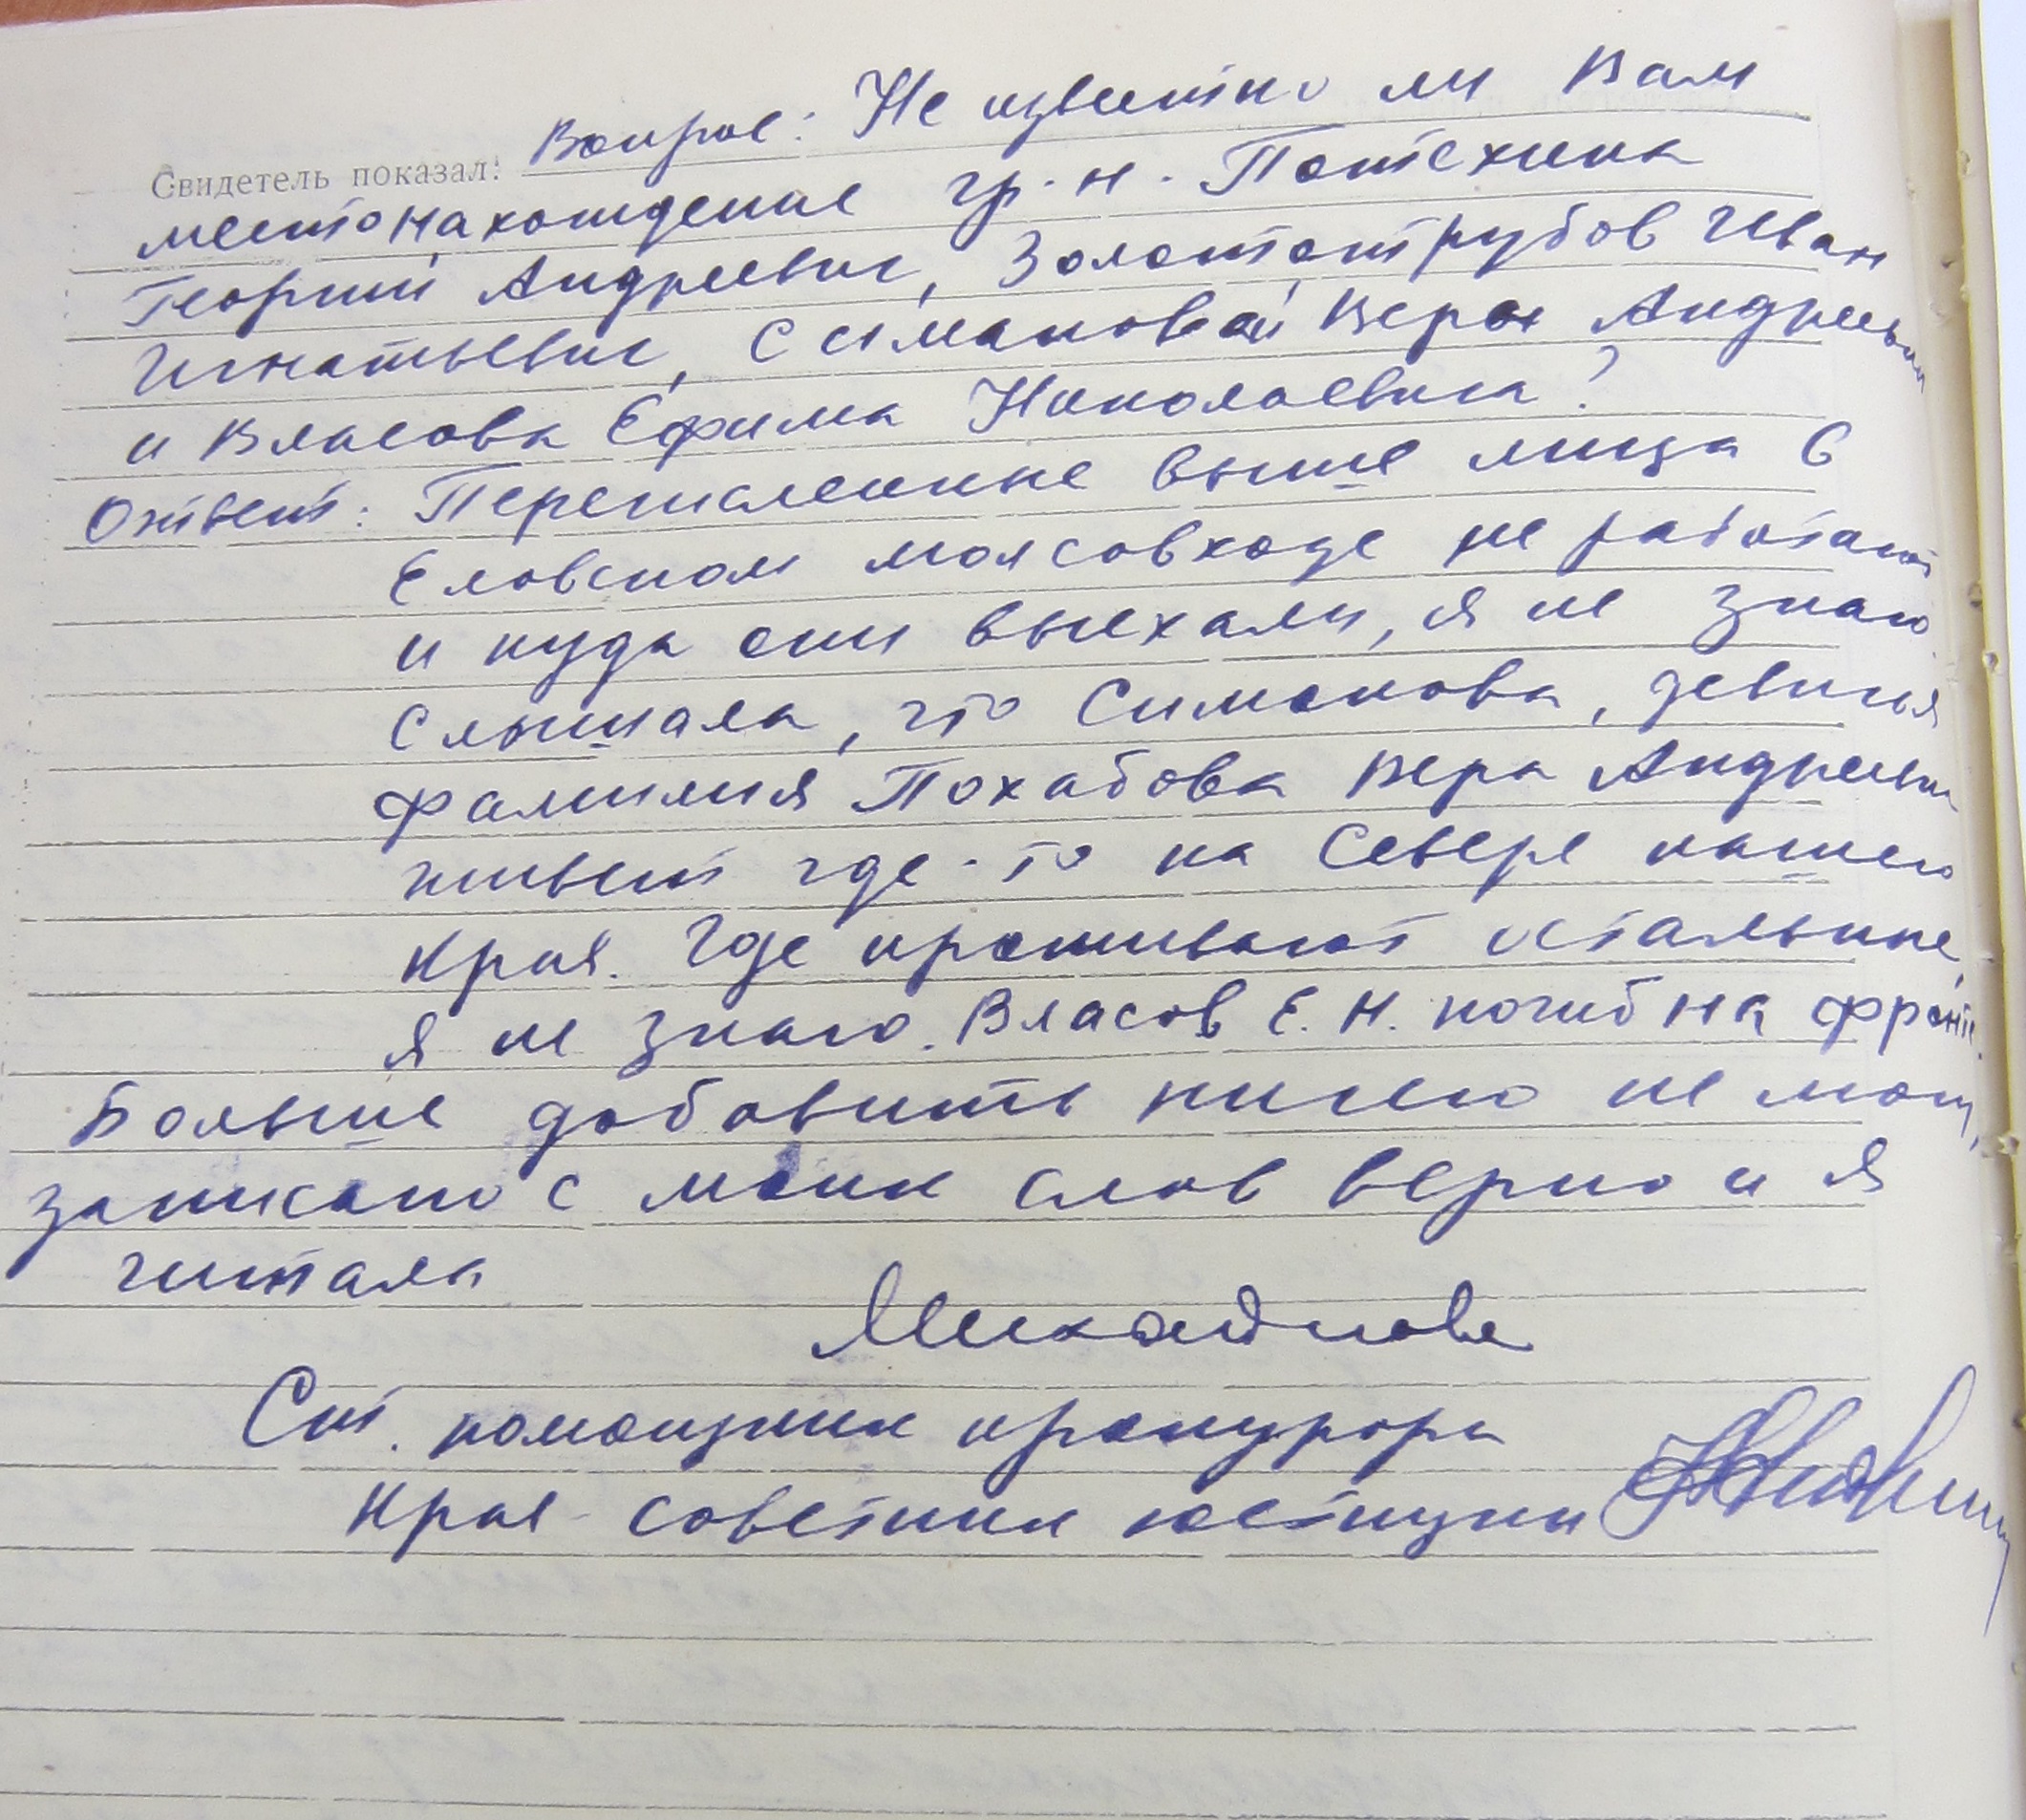 Свидетель показал: Вопрос: Не известно ли Вам
местонахождение гр-н. Потехина
Георгий Андреевич, Золототрубов Иван
Игнатьевич, Симановой Веры Андреевны
и Власова Ефима Николаевича?
Ответ: Перечисленные выше лица в
Еловском маясовхозе не работают
и куда они выехали, я не знаю.
Слышала, что Симонова, девичья
фамилия Похабова Вера Андреевна
живет где-то на Севере нашего
края. Где проживают остальные,
я не знаю. Власов Е. Н. погиб на фронте.
Больше добавить ничего не могу,
записано с моих слов верно и я
читала
Ст. помощник прокурора
края советник юстиции